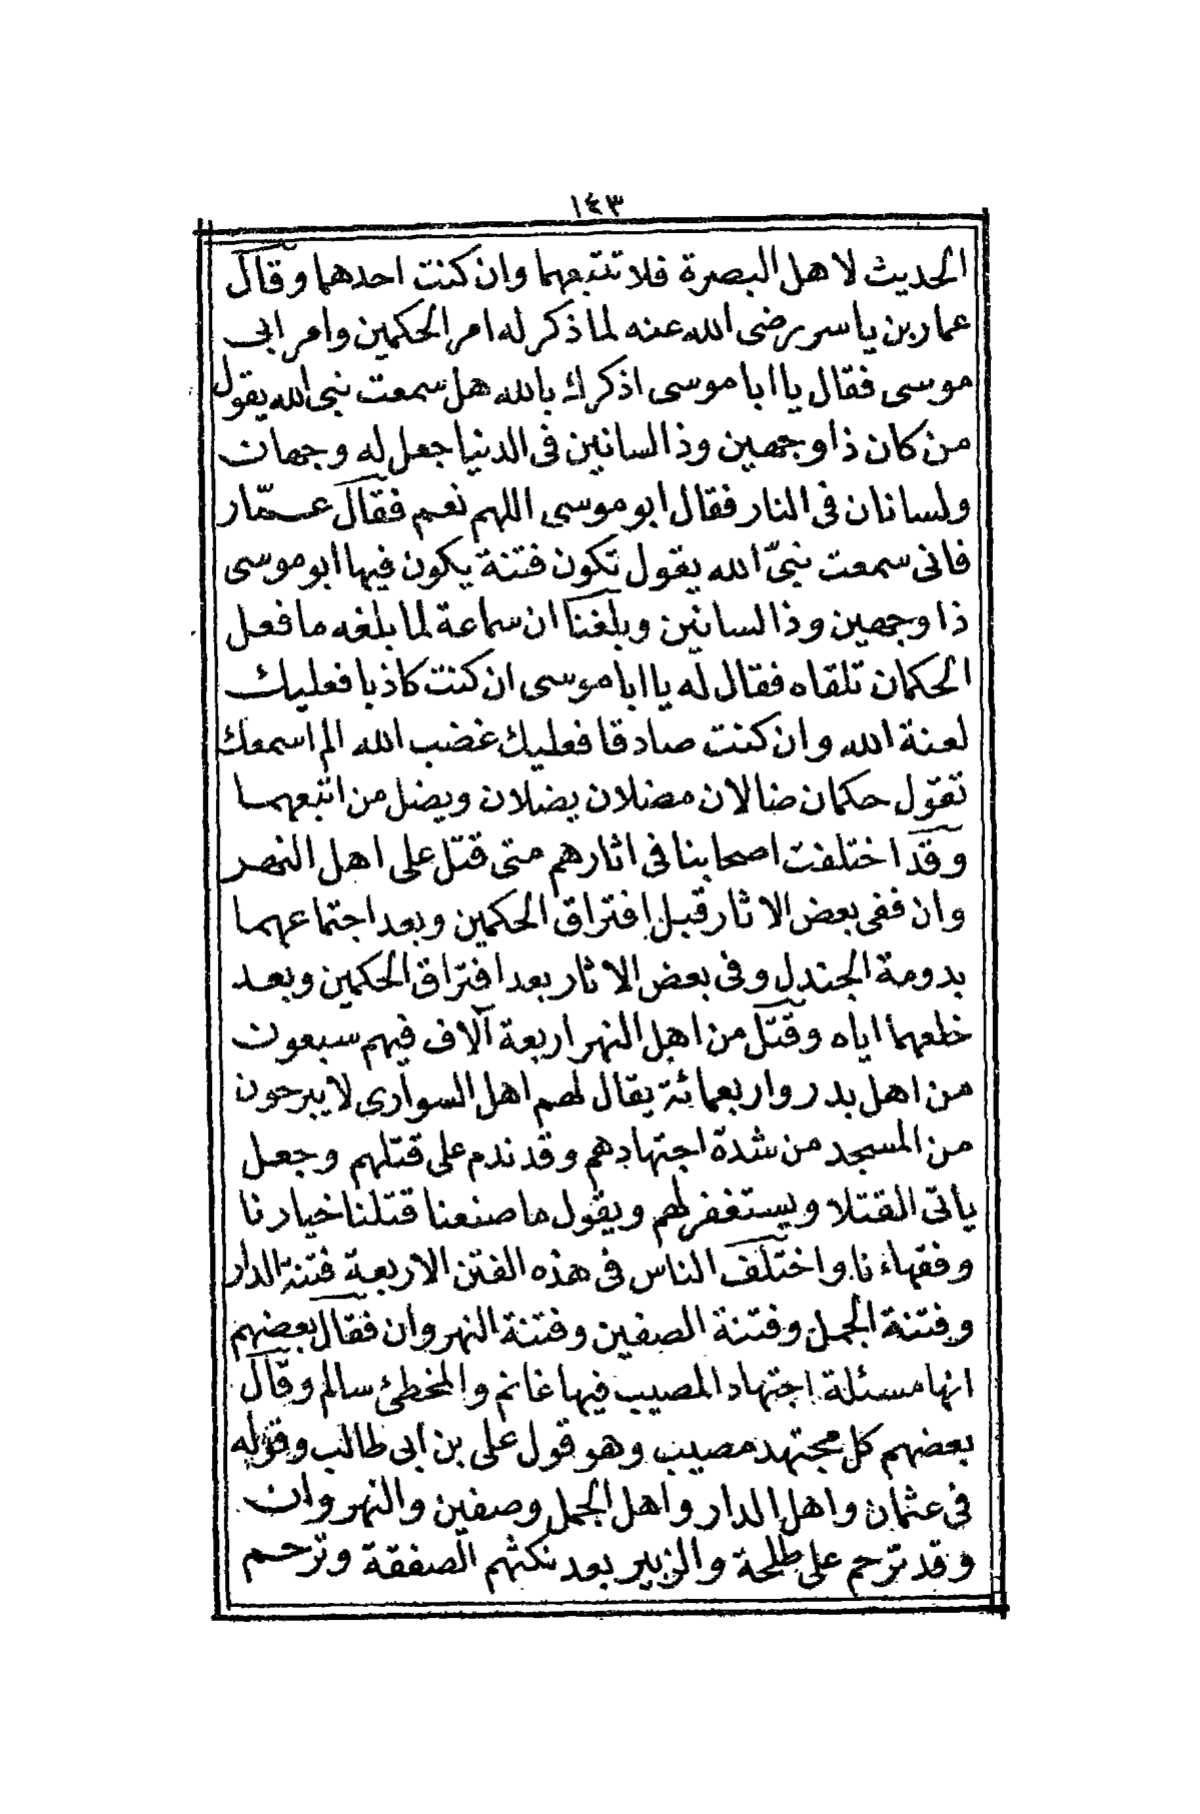 ١٤٣
الحديث لاهل البصرة فلا تتبعهما وان كنت احدهما وقال
عمار بن ياسر رضى الله عنه لما ذكر له امر الحكمين وامر ابى
موسى فقال يا ابا موسى اذكرك بالله هل سمعت نبى الله يقول
من كان ذا وجهين وذا لسانين فى الدنيا جعل له وجهان
ولسانان فى النار فقال ابو موسى اللهم نعم فقال عمّار
فانى سمعت نبىّ الله يقول تكون فتنة يكون فيها ابو موسى
ذا وجهين وذا لسانين وبلغنا ان سماعة لما بلغه ما فعل
الحكمان تلقاه فقال له يا ابا موسى ان كنت كاذبا فعليك
لعنة الله وان كنت صادقا فعليك غضب الله الم اسمعك
تقول حكمان ضالان مضلان يضلان ويضل من اتبعهما
وقد اختلفت اصحابنا فى اثارهم متى قتل على اهل النهر
وان ففى بعض الاثار قبل افتراق الحكمين وبعد اجتماعهما
بدومة الجندل وفى بعض الاثار بعد افتراق الحكمين وبعد
خلعهما اياه وقتل من اهل النهر اربعة آلاف فيهم سبعون
من اهل بدر واربعمائة يقال لهم اهل السوارى لا يبرحون
من المسجد من شدة اجتهادهم وقد ندم على قتلهم وجعل
ياتى القتلا ويستغفر لهم ويقول ما صنعنا قتلنا خيارنا
وفقهاءنا واختلف الناس فى هذه الفتن الاربعة فتنة الدار
وفتنة الجمل وفتنة الصفين وفتنة النهروان فقال بعضهم
انها مسئلة اجتهاد المصيب فيها غانم والمخطئ سالم وقال
بعضهم كل مجتهد مصيب وهو قول على بن ابى طالب وقوله
فى عثمان واهل الدار واهل الجمل وصفين والنهروان
وقد ترحم على طلحة والزبير بعد نكثهم الصفقة وترحم